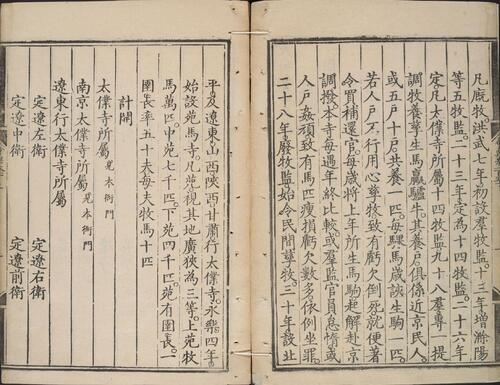 凡廐牧洪武七年初設羣牧監十三年增滁陽
等五牧監二十三年定為十四牧監二十六年
定凡太僕寺所屬十四牧監九十八羣專一提
調牧養孳生馬騾驢牛其養戶俱係近京民人
或五戶十戶共養一匹每騍馬歲該生駒一匹
若人戶不行用心孳牧致有虧欠倒死就便著
令買補還官每歲將上年所生馬駒起解赴京
調撥本寺每遇年終比較或羣監官員怠惰或
人戶姦頑致有馬匹瘦損虧欠數多依例坐罪
二十八年廢牧監始令民間孳牧三十年設北
平及遼東山西陝西甘肅行太僕寺永樂四年
始設苑馬寺凡苑視其地廣狹為三等上苑牧
馬萬匹中苑七千匹下苑四千匹苑有圉長一
圉長率五十夫每夫牧馬十匹
計開
太僕寺所屬見本衙門
南京太僕寺所屬見本衙門
遼東行太僕寺所屬
定遼左衛 定遼右衛
定遼中衛 定遼前衛